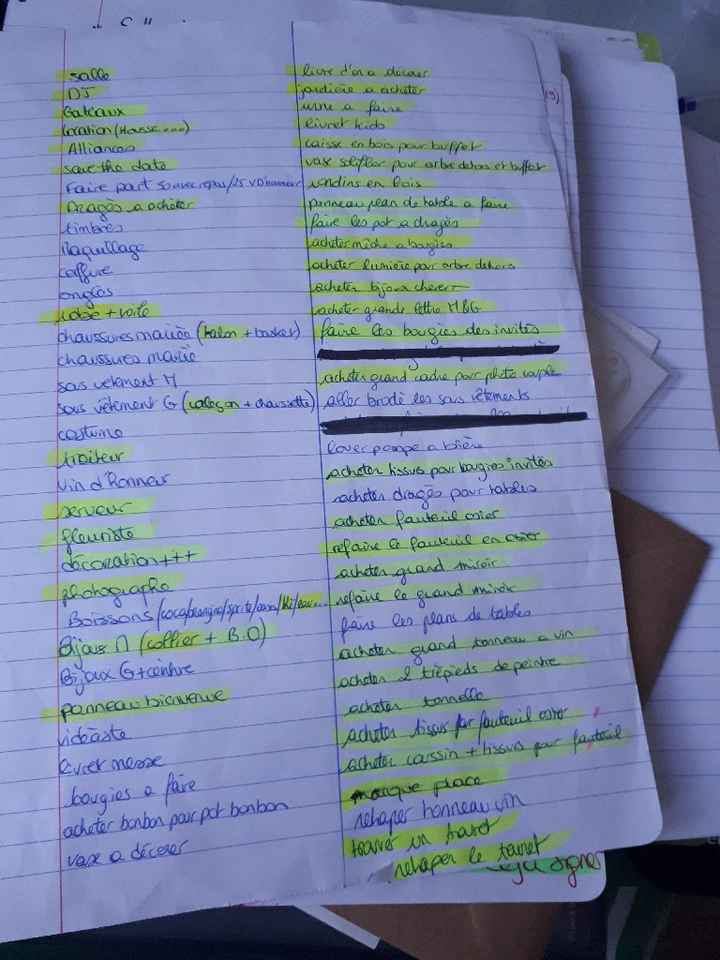 salle
DJ
Gateaux
Location (Housse...)
Alliances
save the date
Faire part
Dragès a acheter
timbres
Maquillage
coiffure
ongles
robe + voile
chaussures mariée (talon + basket)
chaussures marié
sous vetement M
sous vêtement G (caleçon + chaussette)
costume
traiteur
vin d'Honneur
serveur
fleuriste
décoration +++
photographe
Boissons/coca/orangina/sprite/
Bijoux M (collier + B.O)
Bijoux G + ceinture
panneau bienvenue
vidéaste
livret messe
bougies a faire
acheter bonbon pour pot bonbon
vase a décorer
livre d'or a décorer
jardière a acheter
urne a faire
livret kids
caisse en bois pour buffet
vase soliflor pour arbre dehors et buffet
rondins en bois
panneau plan de table a faire
faire les pot a dragès
acheter mèche a bougies
acheter lumière pour arbre dehors
acheter bijoux
acheter grande lettre M&G
faire les bougies des invités
acheter grand cadre pour photo couple
aller brodé les sous vêtements
louer pompe a bière
acheter tissus pour bougies invités
acheter dragès pour tables
acheter fauteuil osier
refaire le fauteuil en osier
acheter grand miroir
refaire le grand miroir
faire les plans de tables
acheter grand tonneau a vin
acheter 2 trèpieds de peintre
acheter tonnelle
acheter tissus par fauteuil osier
acheter coussin + tissus pour fauteuil
marque place
retaper tonneau vin
trouver un touret
retaper le touret
signer